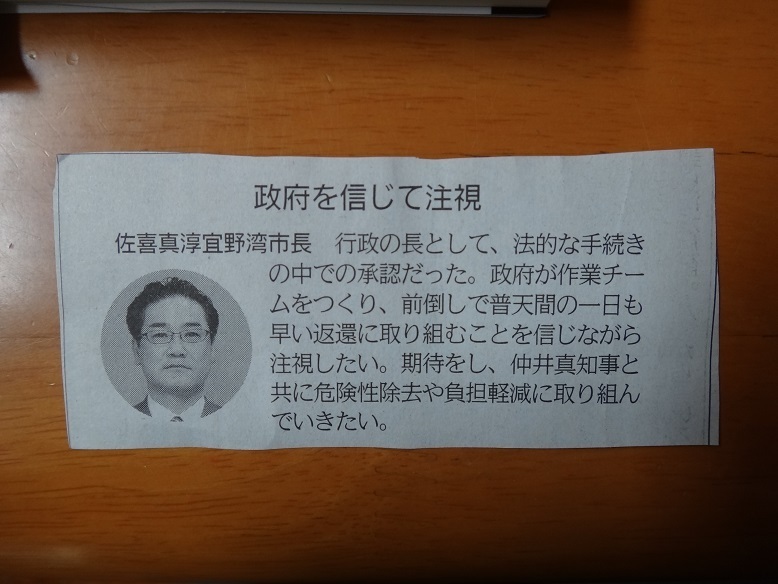 政府を信じて注視
佐喜真淳宜野湾市長　行政の長として、法的な手続き
の中での承認だった。政府が作業チー
ムをつくり、前倒しで普天間の一日も
早い返還に取り組むことを信じながら
注視したい。期待をし、仲井真知事と
共に危険性除去や負担軽減に取り組ん
でいきたい。